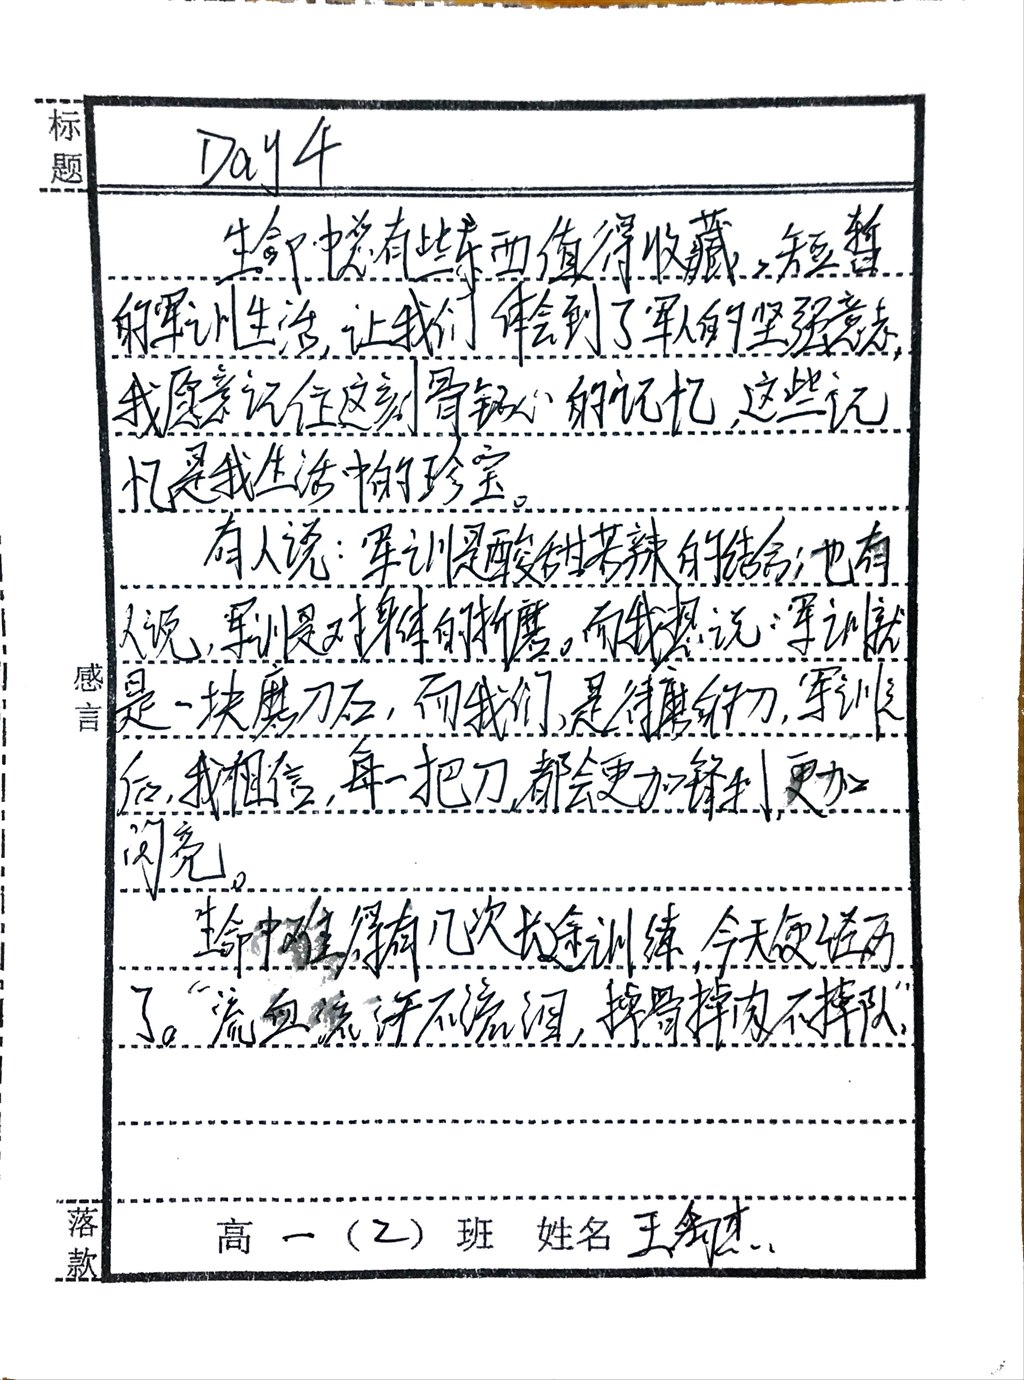 标题
Day 4
生命中总有些东西值得收藏,短暂
的军训生活,让我们体会到了军人的坚强意志,
我愿意记住这刻骨铭心的记忆,这些记
忆是我生活中的珍宝。
有人说:军训是酸甜苦辣的结合;也有
人说,军训是对身体的折磨。而我想说:军训就
是一块磨刀石,而我们,是待磨的刀,军训之
后,我相信,每一把刀,都会更加锋利,更加
闪亮。
感言
生命中难得有几次长途训练,今天便经历
了。“流血流汗不流泪,掉骨掉肉不掉队”
落款
高一(2)班 姓名 王